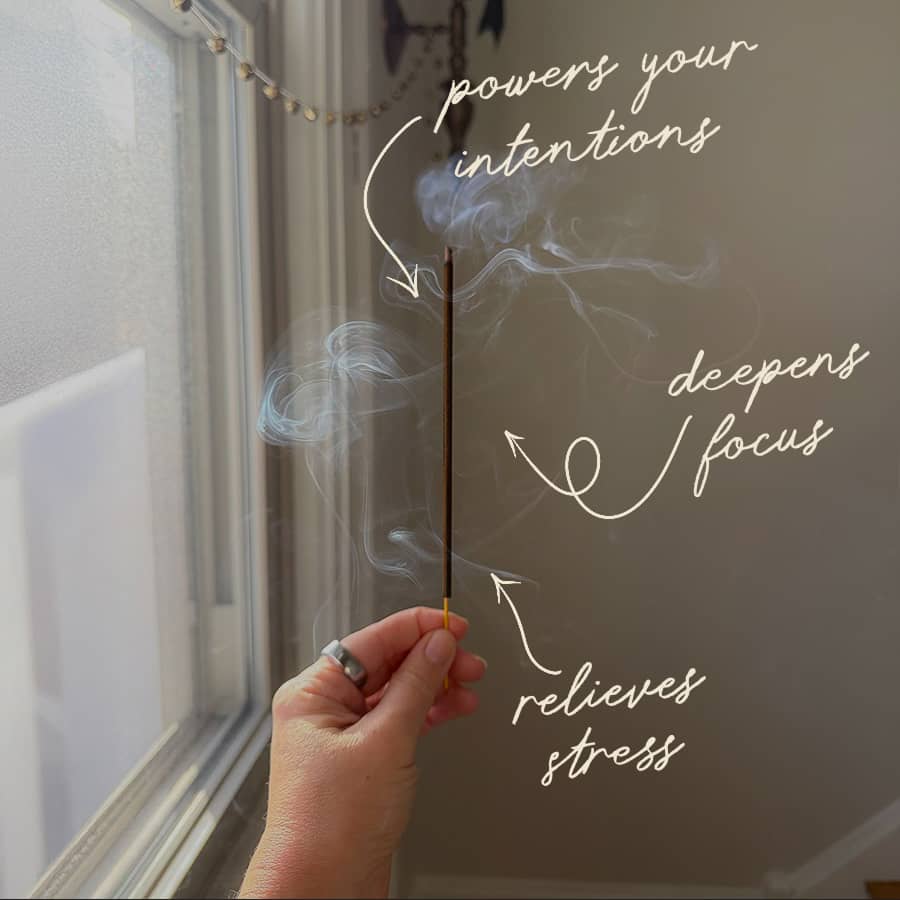 powers your
intentions
deepens
focus
relieves
stress